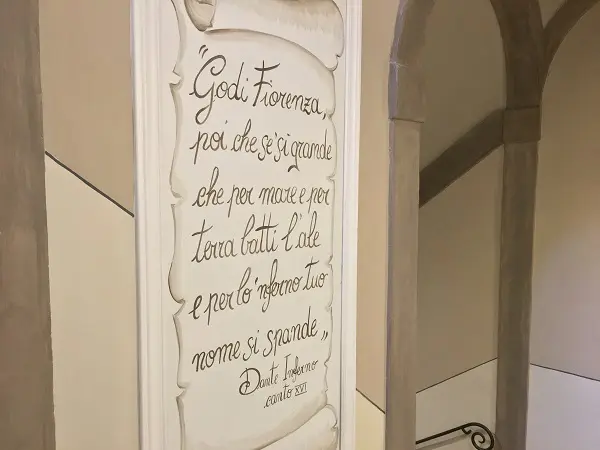 "Godi Fiorenza,
poi che se' si grande
che per mare e per
terra batti l'ale
e per lo 'nferno tuo
nome si spande„
Dante Inferno
canto XVI